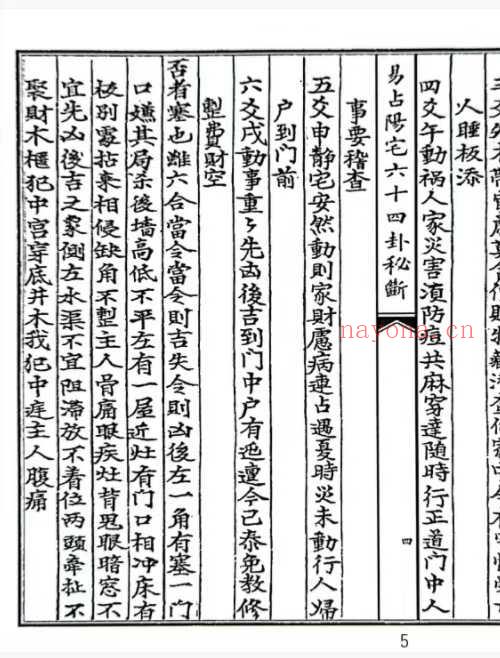 人睡板添
四爻午動祸人家災害湏防痘共麻穷達随時行正道門中人
易占陽宅六十四卦秘斷
四
事要稽查
五爻申静宅安然動則家財慮病連占遇夏時災未動行人歸
户到门前
六爻戌動事重〻先凶後吉到门中户有迍邅今已泰免教修
整費財空
否者塞也雖六合當令當令則吉失令則凶後左一角有塞一門
口嬚其局杀後墙高低不平左右有一屋近灶有门口相冲床有
板别霎拈桒相侵缺角不整主人骨痛眼疾灶背鬼眼暗窓不
宜先凶後吉之象倒左水渠不宜阻滞放不着位两頭牵扯不
聚財木櫃犯中宫穿底井木我犯中産主人腹痛
nayona.cn
5